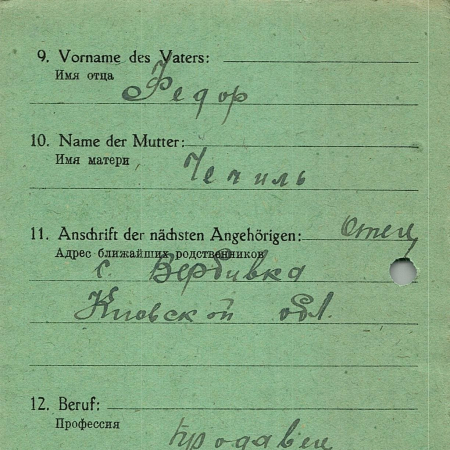 9. Vorname des Vaters:
Имя отца
Федор
10. Name der Mutter:
Имя матери
Чечиль
11. Anschrift der nächsten Angehörigen: Отец
Адрес ближайших родственников
с. Вербивка
Киовской обл.
12. Beruf:
Профессия
продавец